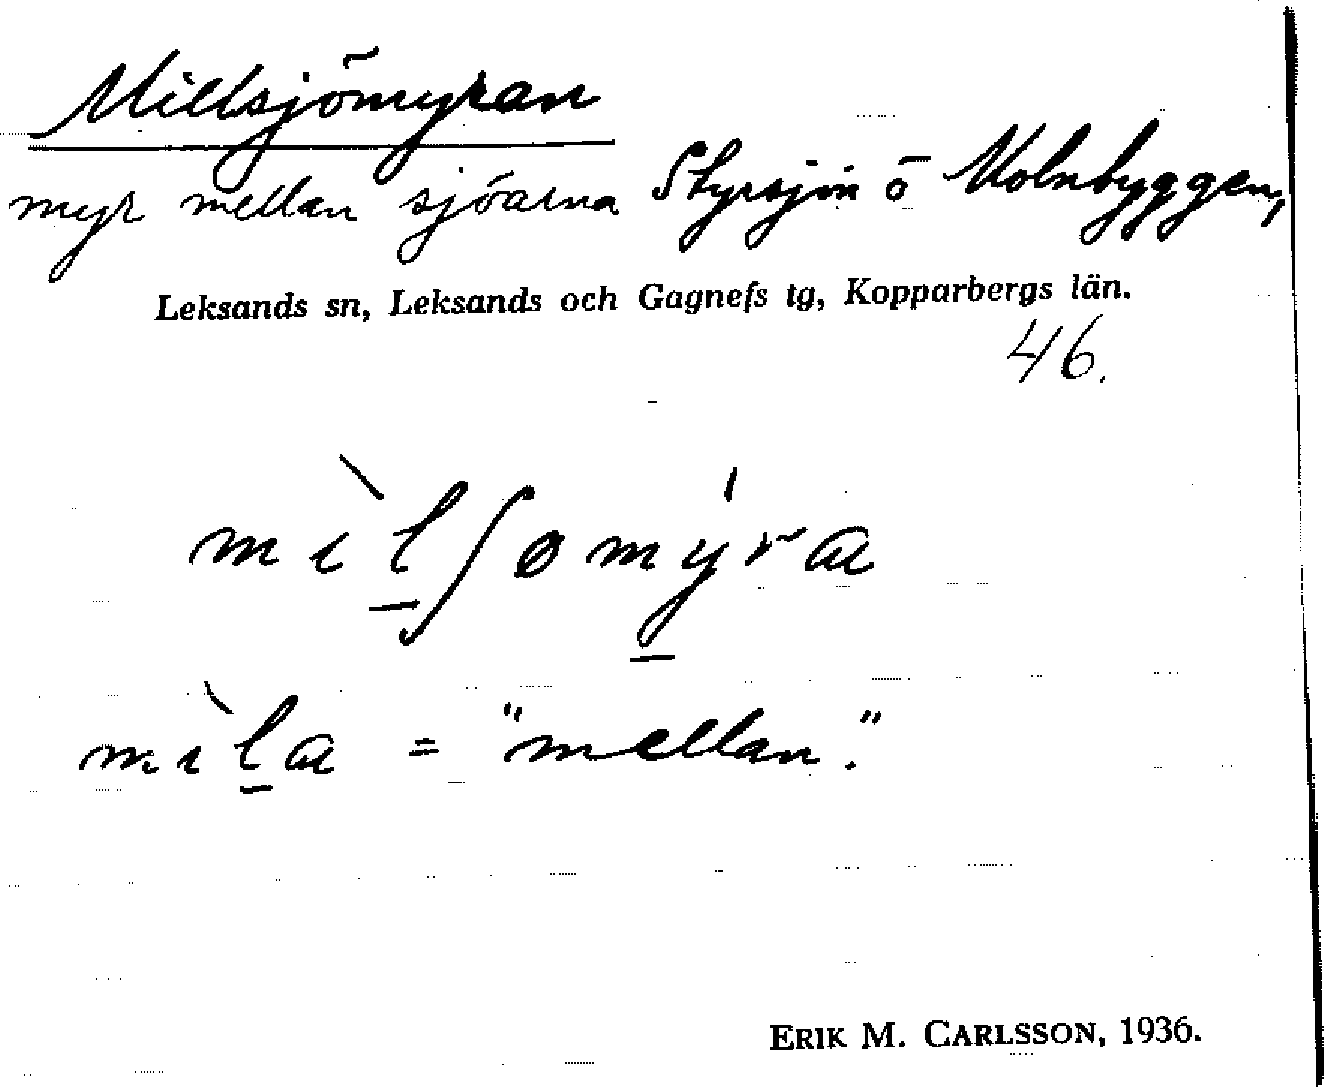 Millsjömyran
myr mellan sjöarna Styrsjön o Molnbyggen,
Leksands sn, Leksands och Gagnefs tg, Kopparbergs län.
46.
mìl̠ʃømý̠ra
mìl̠a = "mellan."
ERIK M. CARLSSON, 1936.